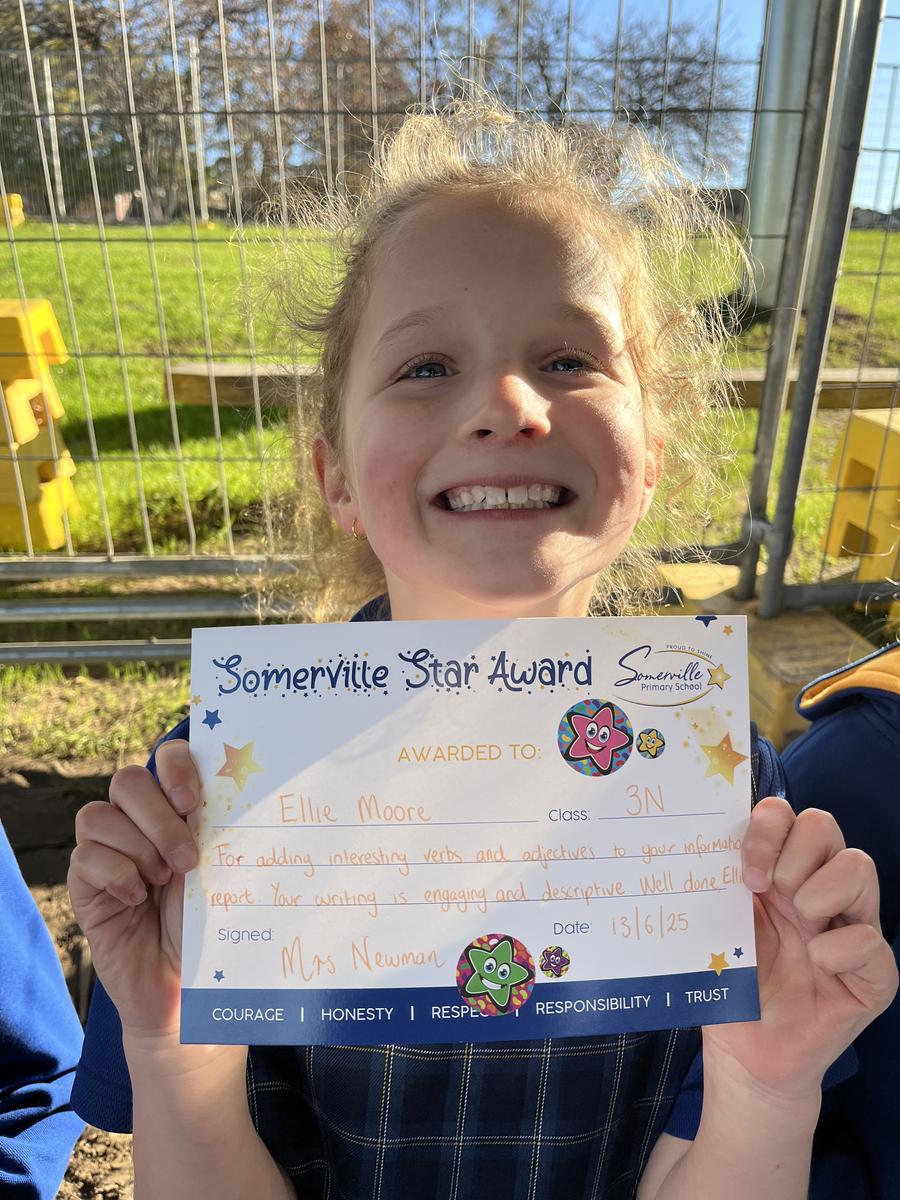 Somerville Star Award
PROUD TO SHINE
Somerville
Primary School
AWARDED TO:
Ellie Moore Class: 3N
For adding interesting verbs and adjectives to your
report. Your writing is engaging and descriptive. Well done
Signed: Mrs Newman Date: 13/6/25
COURAGE | HONESTY | | RESPONSIBILITY | TRUST